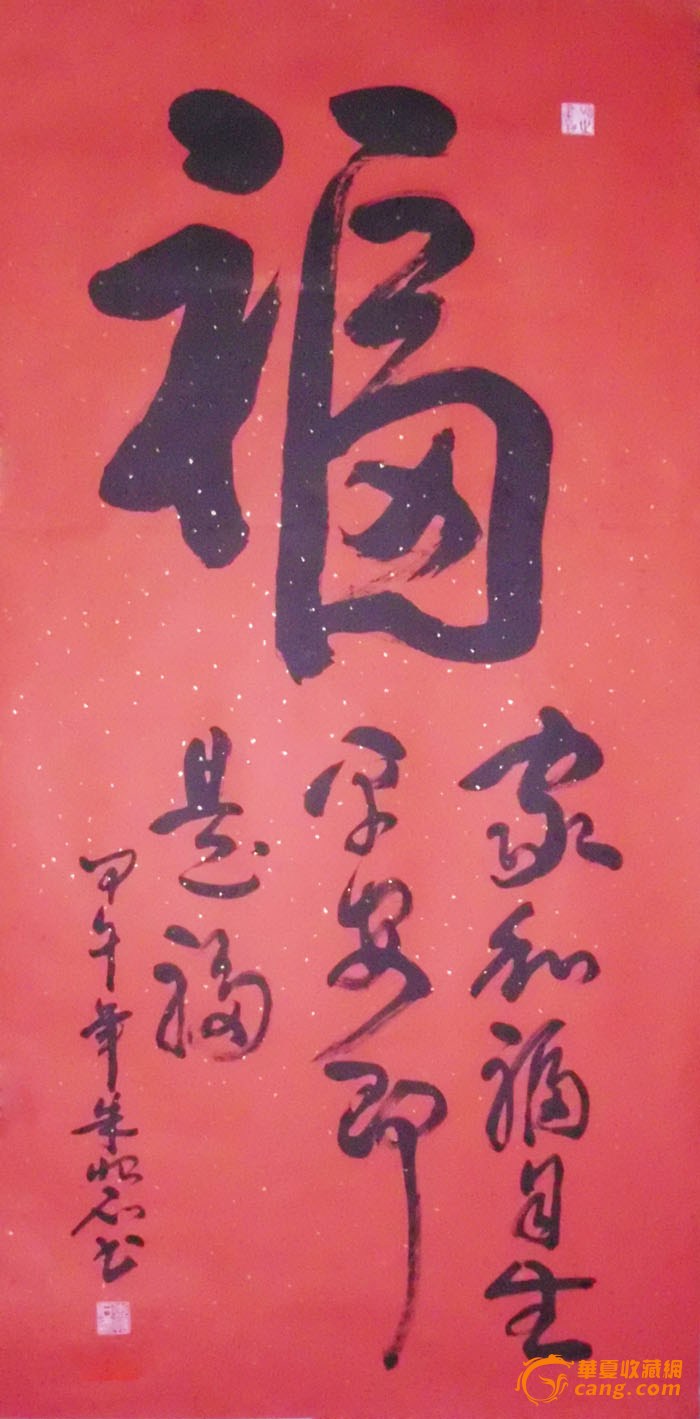 福
家和福自生
平安即
是福
甲午年朱 石书
華夏收藏網
cang.com